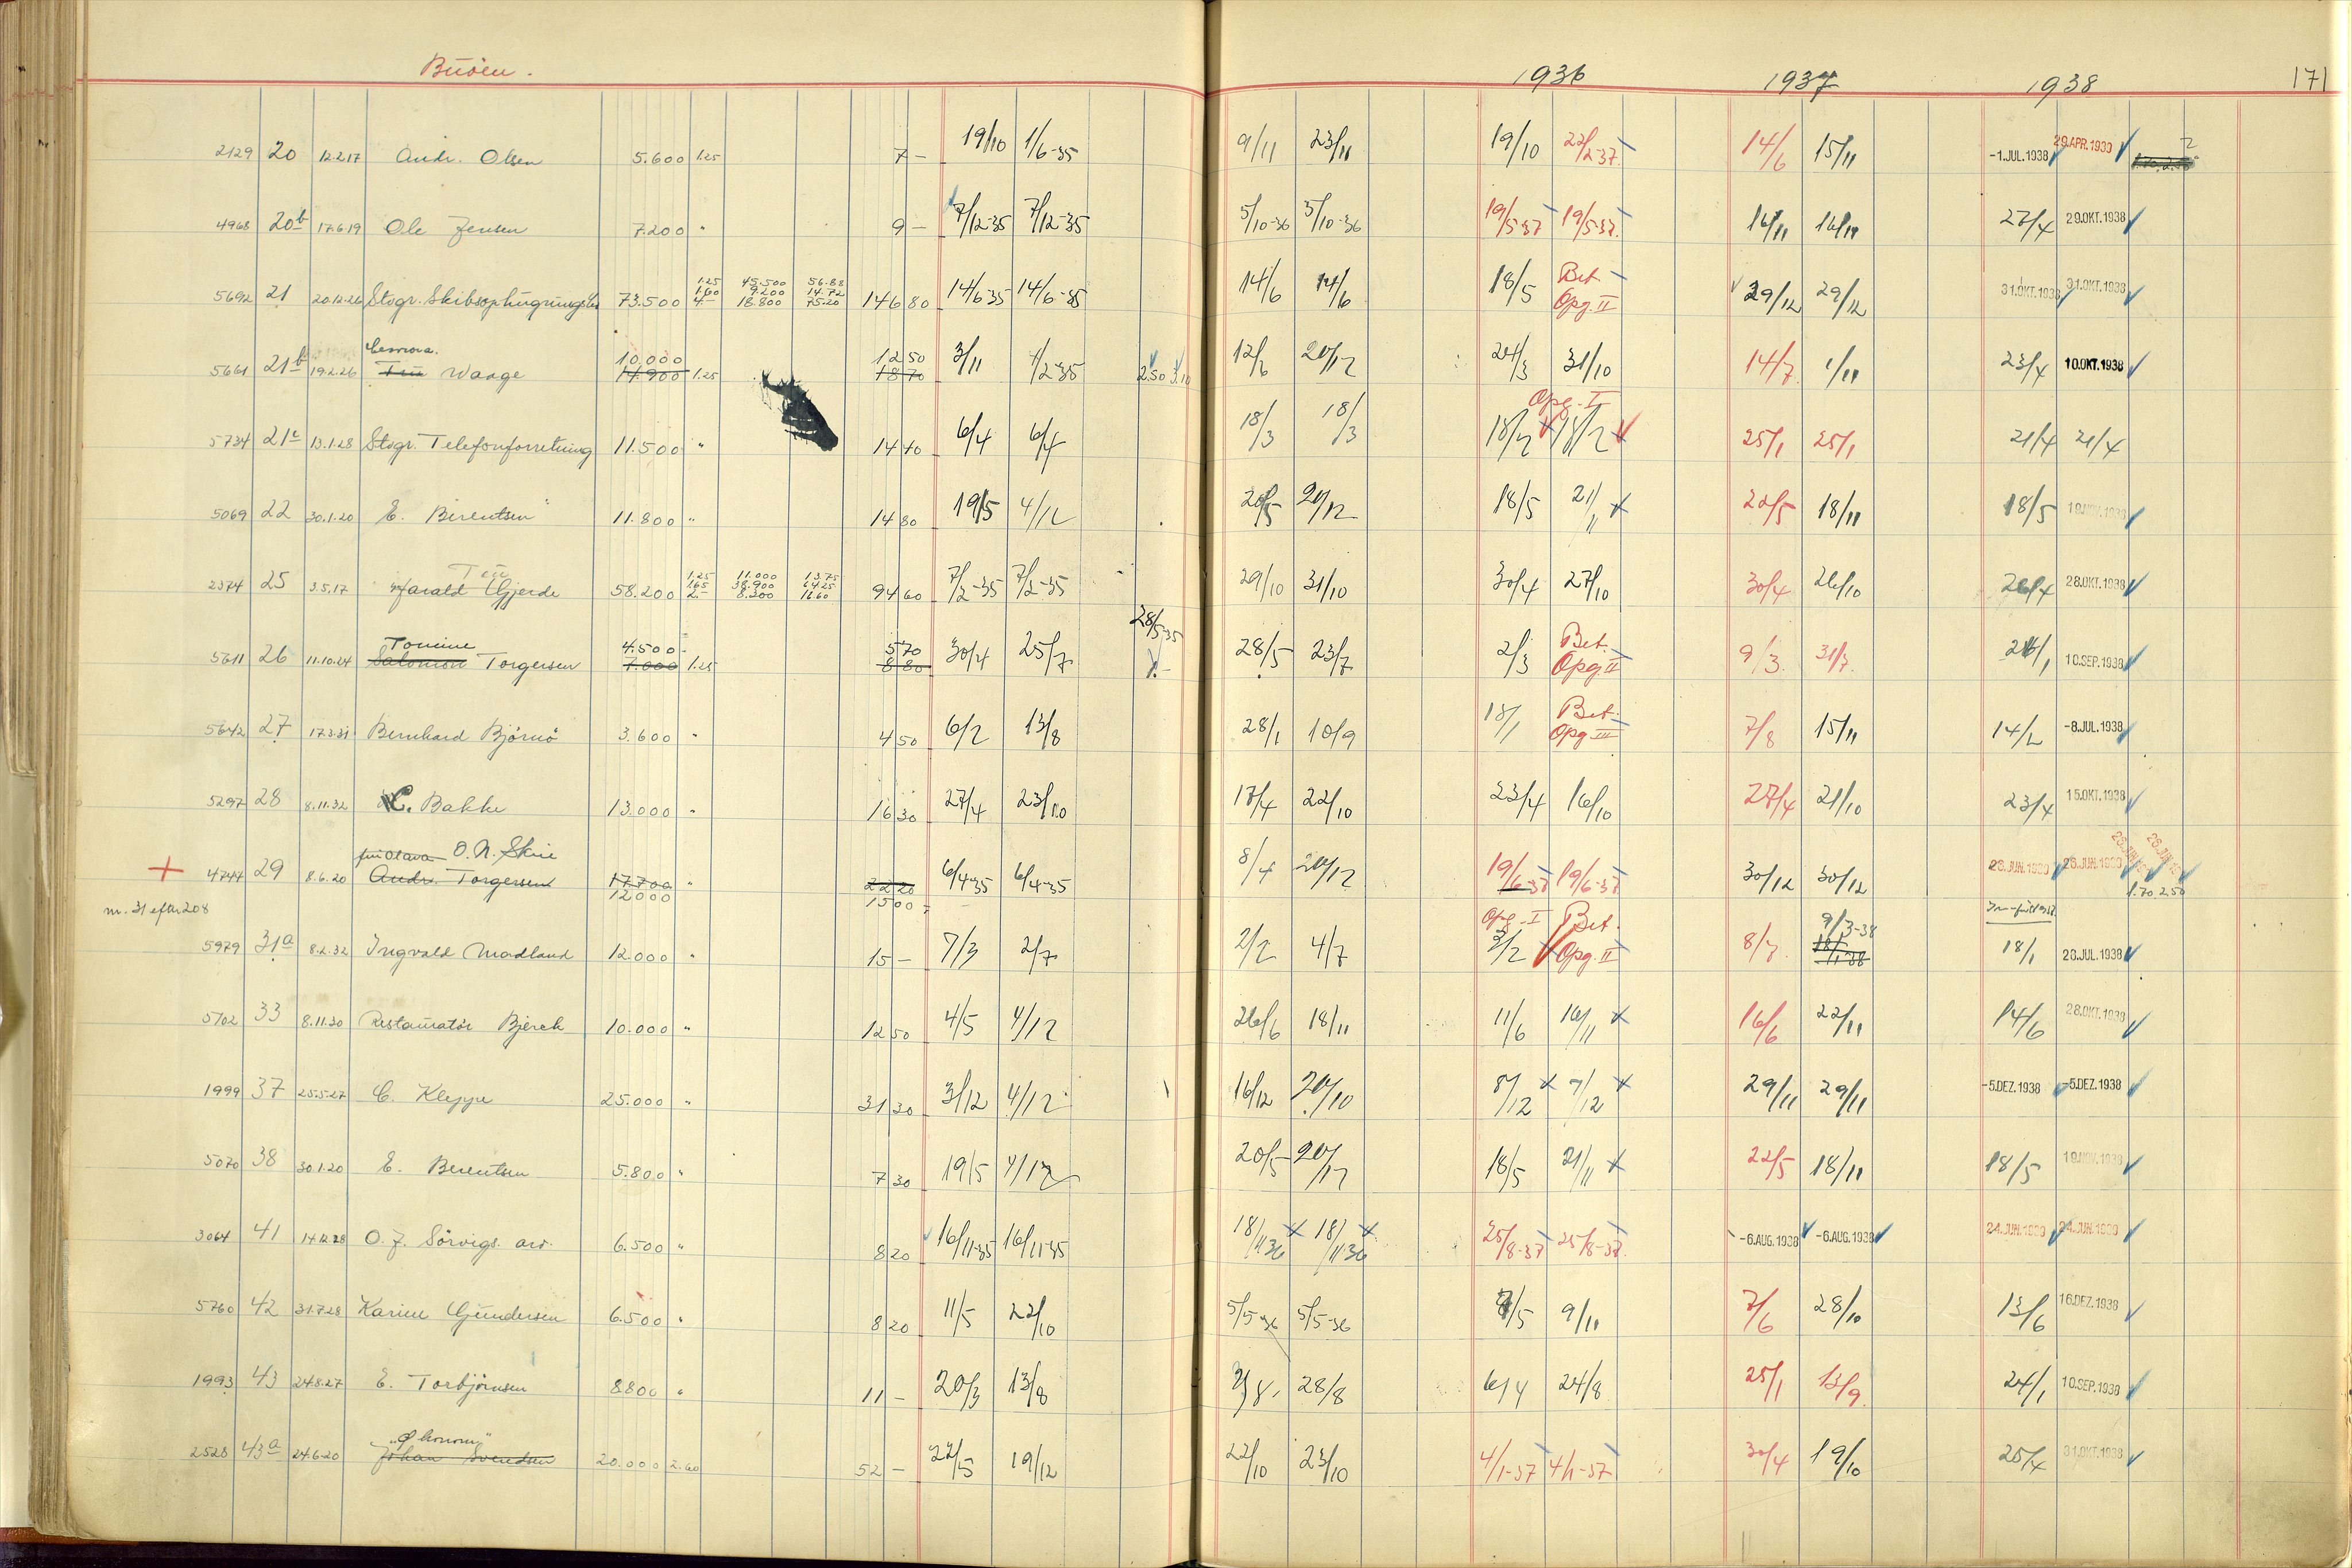 Buöen. 1936 1937 1938 171
2129 20 12.2.17 Andr. Olsen 5.600 1.25 7 – 19/10 1/6-35 9/11 23/11 19/10 22/2-37. 14/6 15/11 -1.JUL.1938 29.APR.1939 2
4968 20b 17.6.19 Ole Jensen 7.200 " 9 – 7/12-35 7/12-35 5/10-36 5/10-36 19/5-37 19/5-37. 16/11 16/11 27/4 29.OKT.1938
1.25 45.500 56.88
5692 21 20.12.26 Stvgr. Skibsophugnings 73.500 1.60 9.200 14.72 146 80 14/6-35 14/6-35 14/6 14/6 18/5 Bet. Opg. II 29/12 29/12 31.OKT.1938 31.OKT.1938
4.– 18.800 75.20
10.000 12 50
5661 21b 19.2.26 Waage 14.900 1.25 18 70 3/11 4/2-35 2.50 3.10 12/6 20/12 24/3 31/10 14/7 1/11 23/4 10.OKT.1938
Opg. I
5734 21c 13.1.28 Stvgr. Telefonforretning 11.500 " 14 40 6/4 6/4 18/3 18/3 18/2 18/2 25/1 25/1 21/4 21/4
5069 22 30.1.20 E. Berentsen 11.800 " 14 80 19/5 4/12 20/5 20/12 18/5 21/11 22/5 18/11 18/5 19.NOV.1938
1.25 11.000 13.75
2374 25 3.5.17 Harald Gjerde 58.200 1.65 38.900 64.25 94 60 7/2-35 7/2-35 29/10 31/10 30/4 27/10 30/4 26/10 26/4 28.OKT.1938
2.– 8.300 16.60
Tomine 4.500 5 70 28/5-35
5611 26 11.10.24 Salomon Torgersen 7.000 1.25 8 80 30/4 25/7 28/5 23/7 2/3 Bet. Opg. II 9/3. 31/7. 24/1 10.SEP.1938
5642 27 17.3.31 Bernhard Björnö 3.600 " 4 50 6/2 13/8 28/1 10/9 18/1 Bet. Opg. III 7/8 15/11 14/2 -8.JUL.1938
5297 28 8.11.32 C. Bakke 13.000 " 16 30 27/4 23/10 17/4 22/10 23/4 16/10 27/4 21/10 23/4 15.OKT.1938
O. N. Skrie
+ 4744 29 8.6.20 Andr. Torgersen 17.700 " 22 20 6/4-35 6/4-35 8/4 20/12 19/6-37 19/6-37 30/12 30/12 23.JUN.1939 26.JUN.1939
12000 15 00 1.70 2.50
nr. 31 efter 208
5979 31a 8.2.32 Ingvald Madland 12.000 " 15 – 7/3 2/7 2/2 4/7 Opg. I 3/2 Bet. Opg. II 8/3. 9/3-38 18/1-38 18/1 23.JUL.1938
5702 33 8.11.30 Restauratör Bjerck 10.000 " 12 50 4/5 4/12 26/6 18/11 11/6 16/11 16/6 22/11 14/6 28.OKT.1938
1999 37 25.5.27 C. Kleppe 25.000 " 31 30 3/12 4/12 16/12 20/10 8/12 7/12 29/11 29/11 -5.DEZ.1938 -5.DEZ.1938
5070 38 30.1.20 E. Berentsen 5.800 " 7 30 19/5 4/12 20/5 20/12 18/5 21/11 22/5 18/11 18/5 19.NOV.1938
3064 41 14.12.28 O. J. Sörvigs. arv. 6.500 " 8 20 16/11-35 16/11-35 18/11 36 18/11 36 25/8-37 25/8-37. -6.AUG.1938 -6.AUG.1938 24.JUN.1939 24.JUN.1939
5760 42 31.7.28 Karine Gundersen 6.500 " 8 20 11/5 22/10 5/5-36 5/5-36 8/5 9/11 7/6 28/10 13/6 16.DEZ.1938
1993 43 24.8.27 E. Torbjörnsen 8800 " 11 – 20/3 13/8 2/8 28/8 6/4 24/8 25/1 13/9. 24/1 10.SEP.1938
2528 43a 24.6.20 Johan Svendsen 20.000 2.60 52 – 22/5 19/12 22/10 23/10 4/1-37 4/1-37 30/4 19/10 25/4 31.OKT.1938